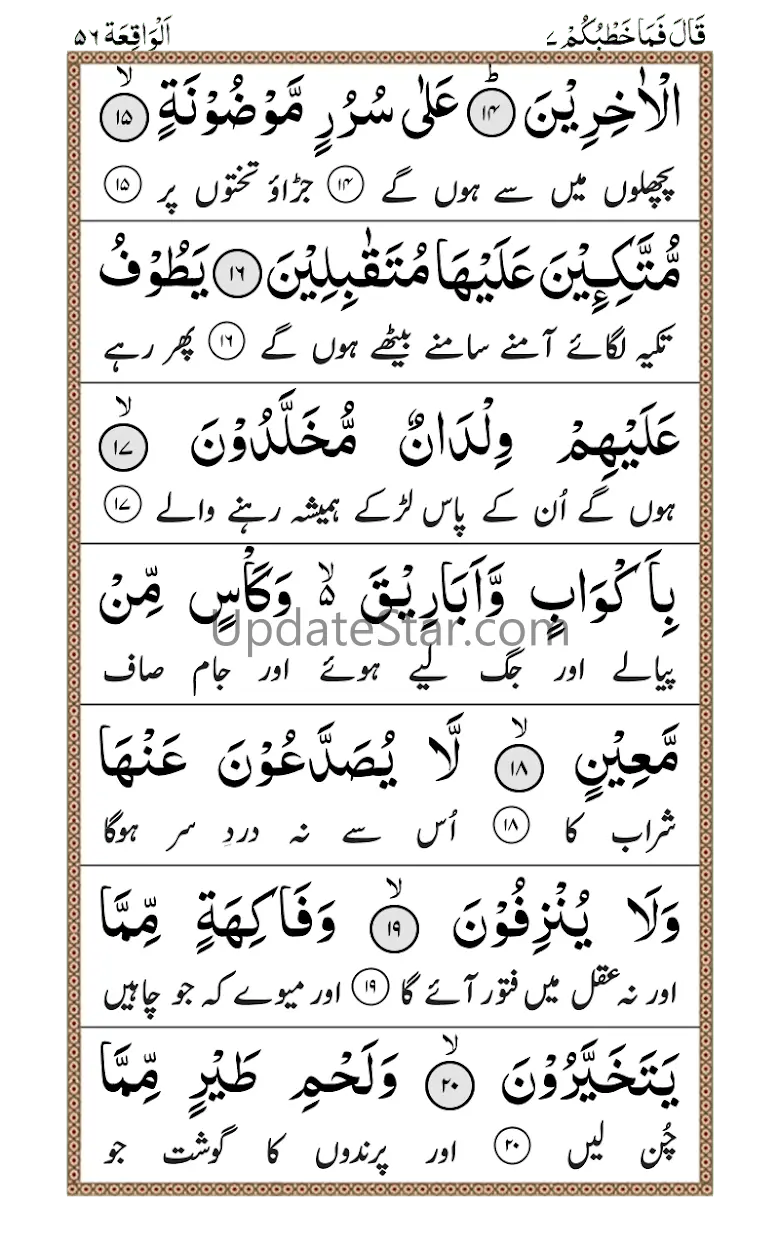 قَالَ فَمَا خَطْبُكُمْ ۲۷ اَلْوَاقِعَة ۵۶
الْاٰخِرِيْنَ ؕ ۱۴ عَلٰى سُرُرٍ مَّوْضُوْنَةٍ ۙ ۱۵
پچھلوں میں سے ہوں گے ۱۴ جڑاؤ تختوں پر ۱۵
مُّتَّكِـِٕيْنَ عَلَيْهَا مُتَقٰبِلِيْنَ ۱۶ يَطُوْفُ
تکیہ لگائے آمنے سامنے بیٹھے ہوں گے ۱۶ پھر رہے
عَلَيْهِمْ وِلْدَانٌ مُّخَلَّدُوْنَ ۙ ۱۷
ہوں گے اُن کے پاس لڑکے ہمیشہ رہنے والے ۱۷
بِاَكْوَابٍ وَّاَبَارِيْقَ ۙ۵ وَكَاْسٍ مِّنْ
UpdateStar.com
پیالے اور جگ لیے ہوئے اور جام صاف
مَّعِيْنٍ ۙ ۱۸ لَّا يُصَدَّعُوْنَ عَنْهَا
شراب کا ۱۸ اُس سے نہ دردِ سر ہوگا
وَلَا يُنْزِفُوْنَ ۙ ۱۹ وَفَاكِهَةٍ مِّمَّا
اور نہ عقل میں فتور آئے گا ۱۹ اور میوے کہ جو چاہیں
يَتَخَيَّرُوْنَ ۙ ۲۰ وَلَحْمِ طَيْرٍ مِّمَّا
چُن لیں ۲۰ اور پرندوں کا گوشت جو